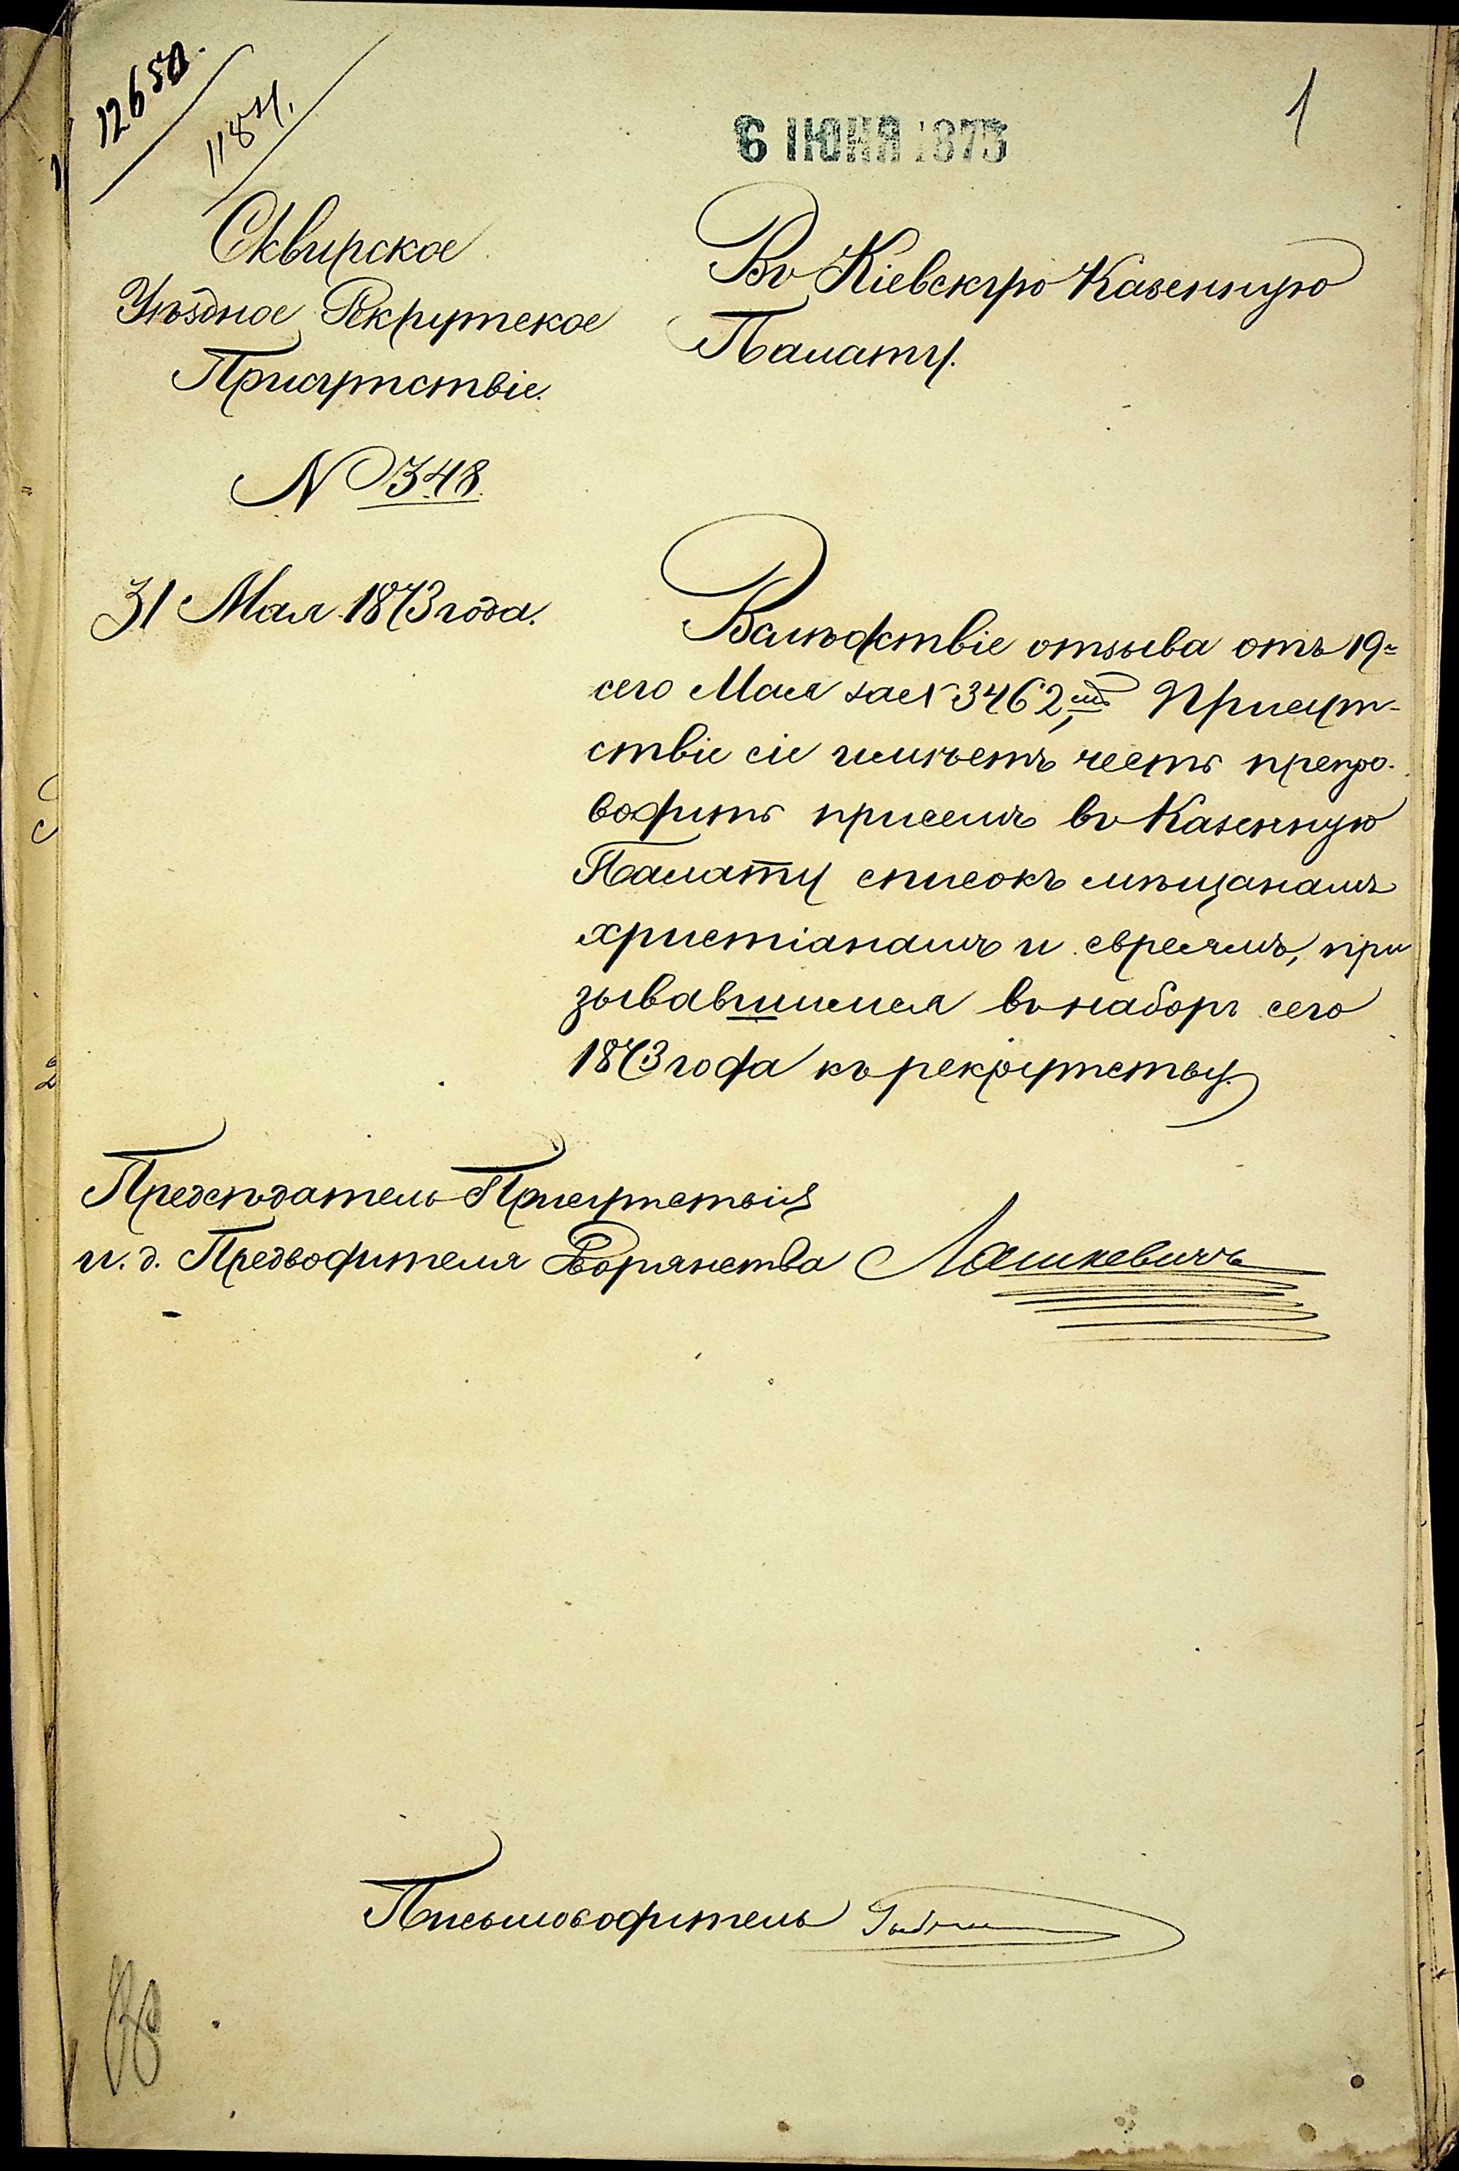 12650.
1
6 ІЮНЯ 1873
Сквирское
Уѣздное Рекрутское
Присутствіе.
N 348.
31 Мая 1873 года.
Въ Кіевскую Казенную
Палату.
Вслѣдствіе отзыва отъ 19го
сего Мая за N 3462мъ, Присут-
ствіе сіе имѣетъ честь препро-
водить присемъ въ Казенную
Палату списокъ мѣщанамъ
христіанамъ и евреямъ, при
зывавшимся въ наборъ сего
1873 года къ рекрутству.
Предсѣдатель Присутствія
и. д. Предводителя Дворянства Лашкевичъ
Письмоводитель